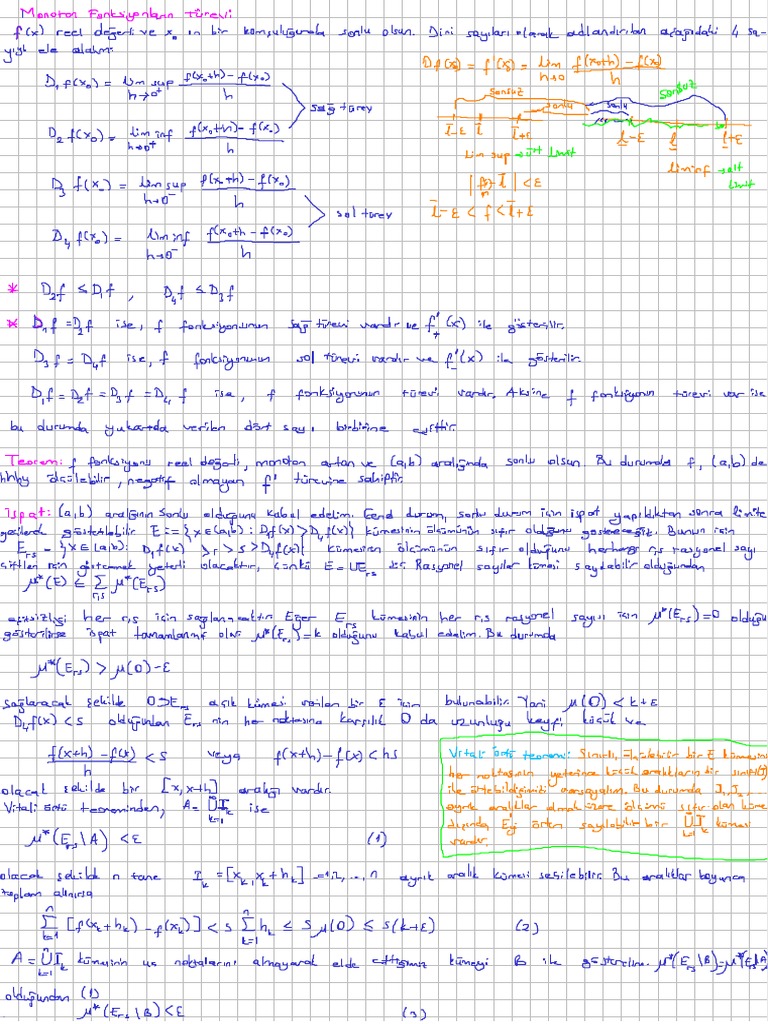 Monoton Fonksiyonların Türevi:
f(x) reel değerli ve x₀ ın bir komşuluğunda sonlu olsun. Dini sayıları olarak adlandırılan aşağıdaki 4 sa-
yıyı ele alalım:
D₁f(x₀) = lim sup_{h→0⁺} (f(x₀+h) - f(x₀))/h
D₂f(x₀) = lim inf_{h→0⁺} (f(x₀+h) - f(x₀))/h
sağ türev
D₃f(x₀) = lim sup_{h→0⁻} (f(x₀+h) - f(x₀))/h
D₄f(x₀) = lim inf_{h→0⁻} (f(x₀+h - f(x₀))/h
sol türev
Df(x₀) = f'(x₀) = lim_{h→0} (f(x₀+h) - f(x₀))/h
sonsuz sonlu sonlu sonsuz
l̄-ε l̄ l̄+ε l-ε l l+ε
lim sup → üst limit
lim inf → alt limit
l̄-ε < f < l̄+ε
* D₂f ≤ D₁f , D₄f ≤ D₃f
* D₁f = D₂f ise, f fonksiyonunun sağ türevi vardır ve f'₊(x) ile gösterilir.
D₃f = D₄f ise, f fonksiyonunun sol türevi vardır ve f'₋(x) ile gösterilir.
D₁f = D₂f = D₃f = D₄f ise, f fonksiyonunun türevi vardır. Aksine f fonksiyonın türevi var ise
bu durumda yukarıda verilen dört sayı birbirine eşittir.
Teorem: f fonksiyonu reel değerli, monoton artan ve (a,b) aralığında sonlu olsun. Bu durumda f, (a,b) de
hhhy ölçülebilir, negatif olmayan f' türevine sahiptir.
İspat: (a,b) aralığının sonlu olduğunu kabul edelim. Genel durum, sonlu durum için ispat yapıldıktan sonra limite
geçilerek gösterilebilir E:={x∈(a,b): D₁f(x)>D₄f(x)} kümesinin ölçümünün sıfır olduğunu göstereceğiz. Bunun için
E_rs = {x∈(a,b): D₁f(x) > r > s > D₄f(x)} kümesinin ölçümünün sıfır olduğunu herhangi r,s rasyonel sayı
çiftleri için göstermek yeterli olacaktır, çünkü E = ∪E_rs dir. Rasyonel sayılar kümesi sayılabilir olduğundan
μ*(E) ≤ Σ_{r,s} μ*(E_rs)
eşitsizliği her r,s için sağlanacaktır. Eğer E_rs kümesinin her r,s rasyonel sayısı için μ*(E_rs)=0 olduğu
gösterilirse ispat tamamlanmış olur. μ*(E_rs)=k olduğunu kabul edelim. Bu durumda
μ*(E_rs) > μ(O)-ε
sağlanacak şekilde O⊃E_rs açık kümesi verilen bir ε için bulunabilir. Yani μ(O) < k+ε
D₄f(x)<s olduğundan E_rs nin her noktasına karşılık O da uzunluğu keyfi küçük ve
(f(x+h) - f(x))/h < s veya f(x+h)-f(x) < hs
olacak şekilde bir [x,x+h] aralığı vardır.
Vitali örtü teoreminden, A = ∪_{k=1}^{n} I_k ise
μ*(E_rs \ A) < ε (1)
Vitali örtü teoremi: Sınırlı, bir E kümesinin
her noktasının yeterince küçük aralıkların bir sınıfı
ile örtebildiğimizi varsayalım. Bu durumda I₁, I₂, ..
ayrık aralıklar olmak üzere ölçümü sıfır olan küme
dışında E yi örten sayılabilir bir ∪I_k kümesi
vardır.
olacak şekilde n tane I_k = [x_k, x_k+h_k] ,n ayrık aralık kümesi seçilebilir. Bu aralıklar boyunca
toplam alınırsa
Σ_{k=1}^{n} [f(x_k+h_k) - f(x_k)] < s Σ_{k=1}^{n} h_k ≤ s μ(O) ≤ s(k+ε) (2)
A = ∪_{k=1}^{n} I_k kümesinin uç noktalarını almayarak elde ettiğimiz kümeyi B ile gösterelim. μ*(E_rs\B)=μ*(E_rs\A)
olduğundan (1)
μ*(E_rs \ B) < ε (3)